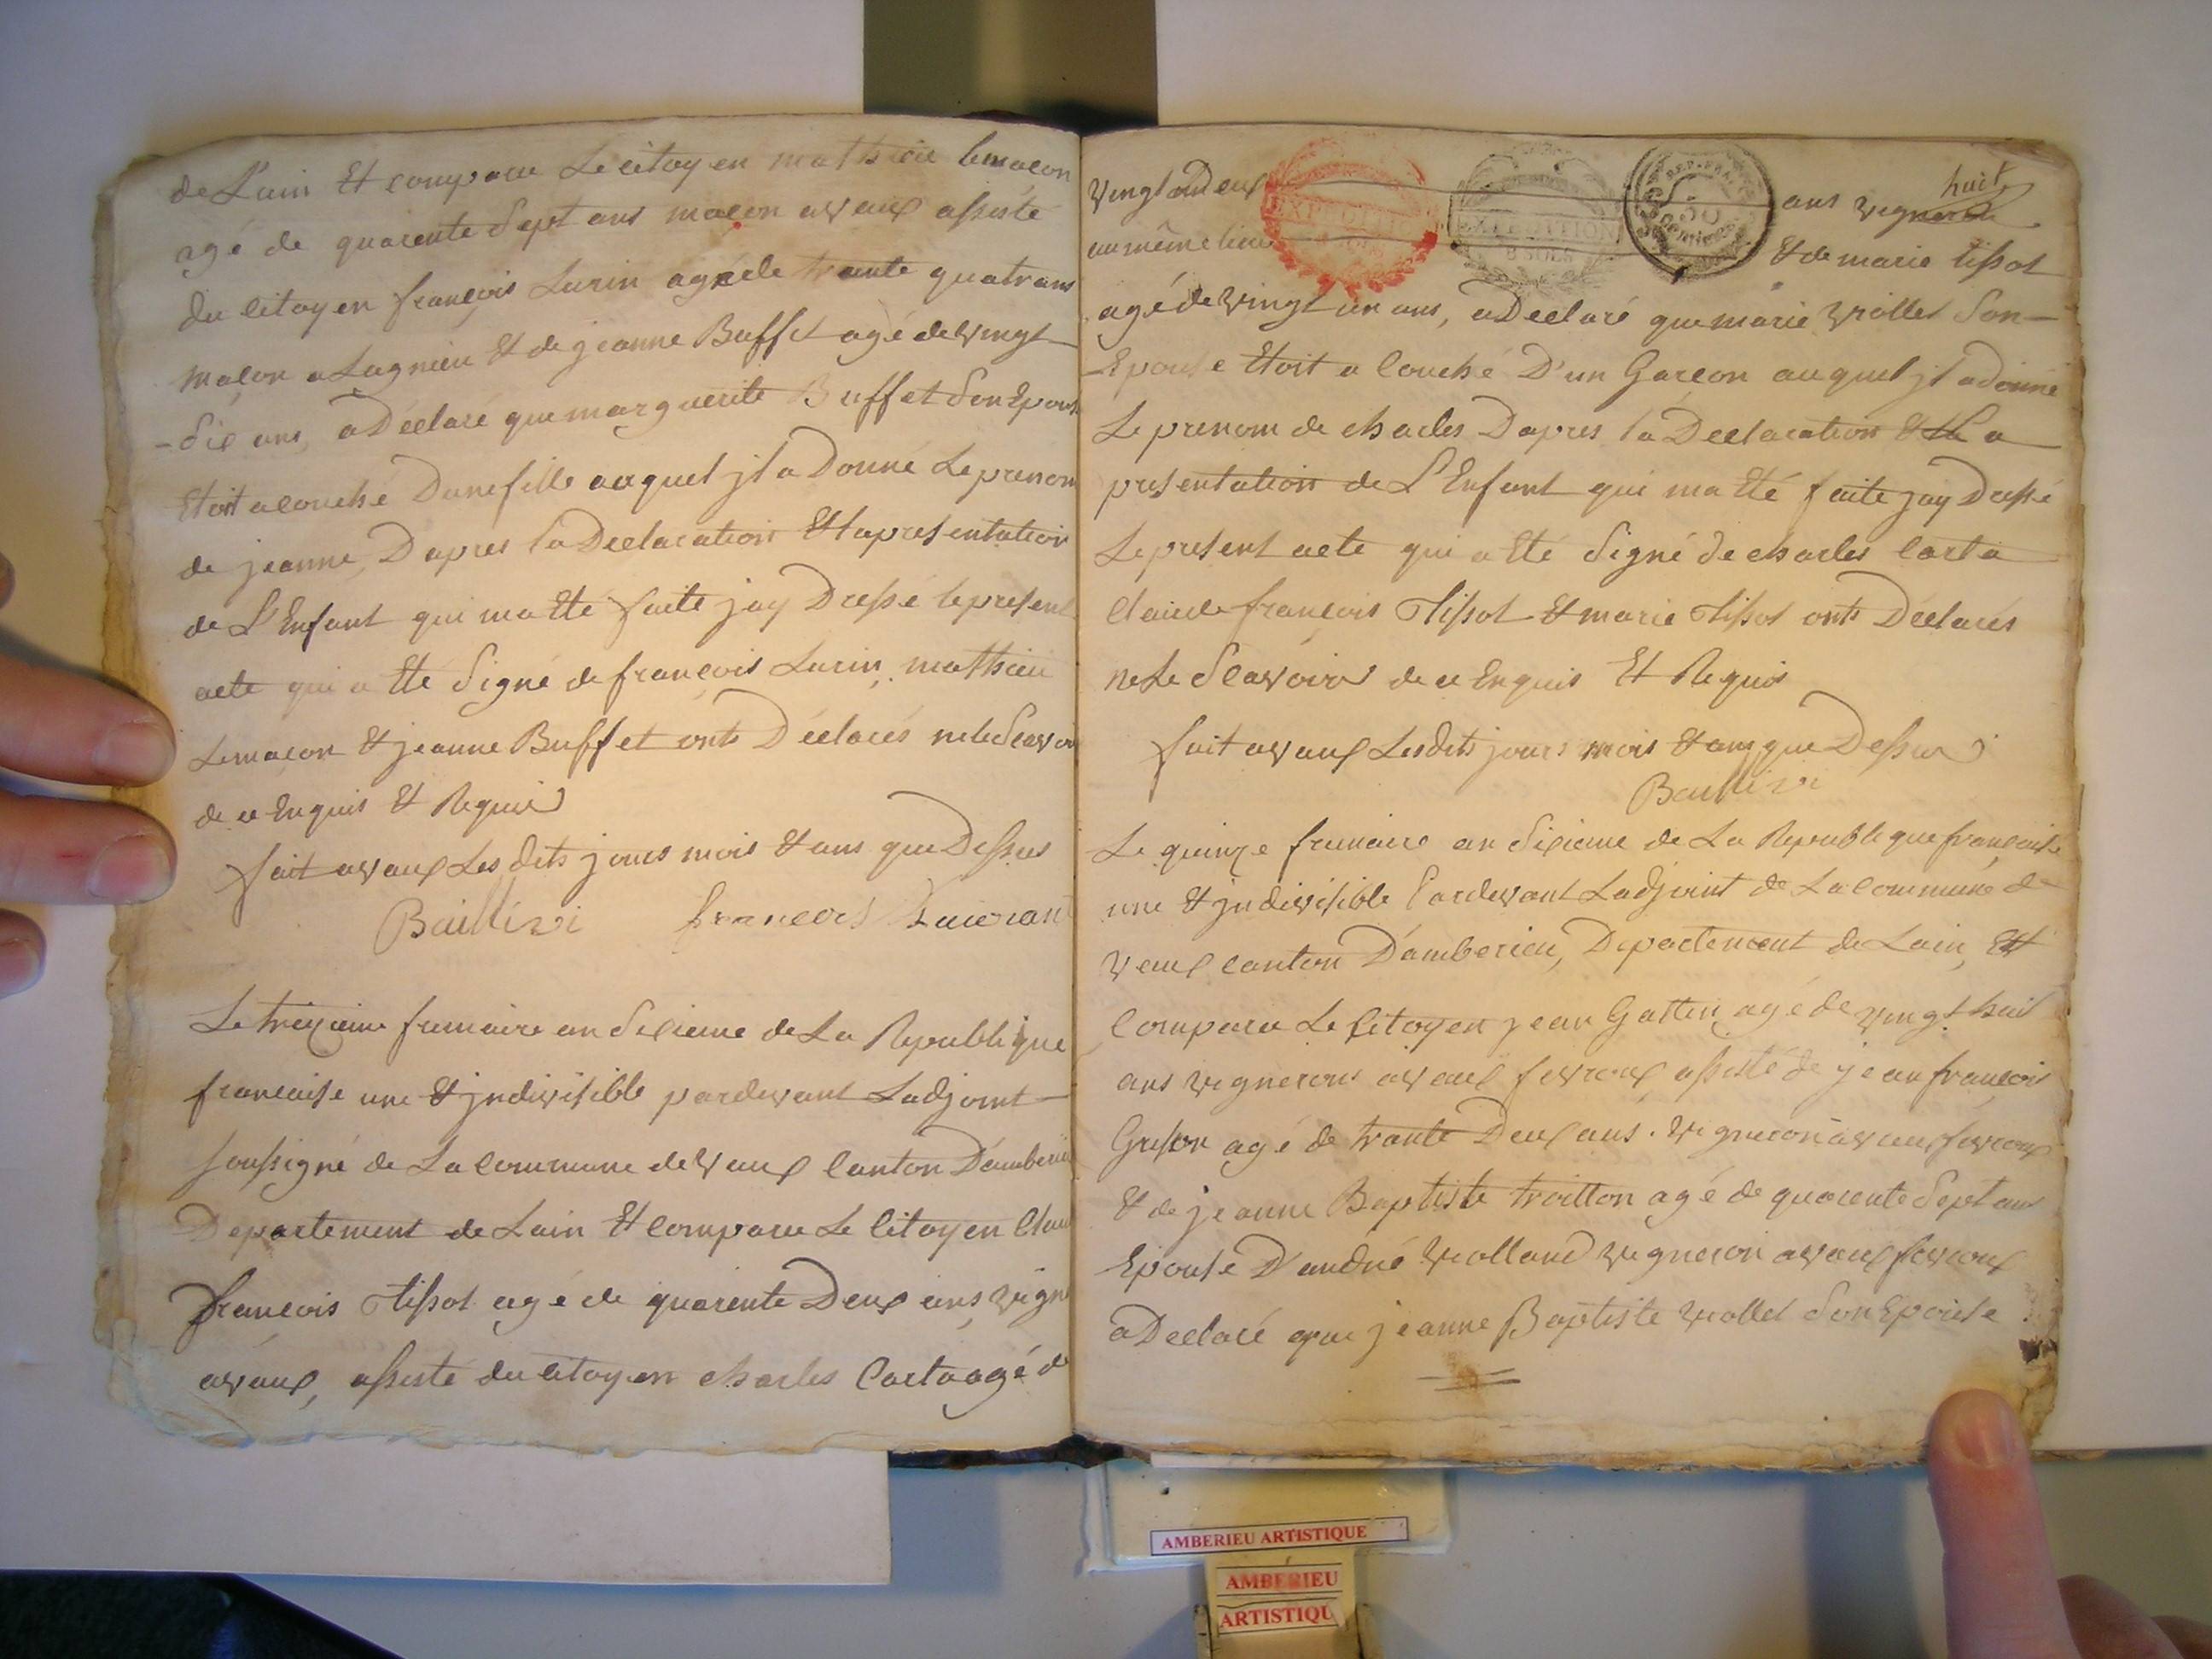 de Lain Et comparu Le citoyen mathieu lemacon
agé de quarente Sept ans macon avaux assisté
du citoyen françois Lurin agéde trante quatrans
macon a Lagnieu Et de jeanne Buffet agé devingt
-Six ans, aDéclaré que marguerite Buffet Son Epouse
Etoit acouché Dunefille auquel jl a Donné Le prenom
de jeanne, Dapres la Declaration Et la presentation
de L'Enfant qui ma Eté faite jay Dressé le present
acte qui a Eté Signé de françois Lurin, mathieu
Lemacon & jeanne Buffet onts Déclarés ne le Scavoir
de ce Enquis & Requis
fait avaux Les dits jours mois & ans que Dessus
francois
Le treizieme frimaire an Sixieme de La Republique
francaise une & jndivisible pardevant Ladjoint
soussigné de La commune de Vaux Canton Damberieu
Departement de Lain Et comparu Le Citoyen Claude
francois Tissot agé de quarente Deux ans, vign
avaux, assisté du citoyen charles Carta agé de
Vingt Deux ans vigneron huit
au même lieu & de marie tissot
agé de vingt un ans, aDeclaré que marie Viollet Son
Epouse Etoit a Couché D'un Garcon auquel jl a donné
Le prenom de charles Dapres la Declaration & La
presentation de L'Enfant qui ma Eté faite jay Dressé
Le present acte qui a Eté Signé de charles Carta
Claude francois Tissot & marie Tissot onts Déclarés
ne Le Scavoir de ce Enquis Et Requis
fait avaux Les dits jours mois & ans que Dessus
Le quinze frimaire an Sixieme de La Republique francaise
une & jndivisible Pardevant Ladjoint de La commune de
Vaux canton Damberieu, Departement de Lain, Et
Comparu Le Citoyen jean Gattin agé de vingt huit
ans vignerons avaux fevroux assisté de jean francois
Gruson agé de trante Deux ans. vigneron avaux fevroux
& de jeanne Baptiste troitton agé de quarente Sept ans
Epouse D'andré Violland vigneron avaux fevroux
aDeclaré que jeanne Baptiste Viollet Son Epouse
EXPEDITION
EXPEDITION
8 SOLS
REP. FRA
50
Centimes
AMBERIEU ARTISTIQUE
AMBERIEU
ARTISTIQU